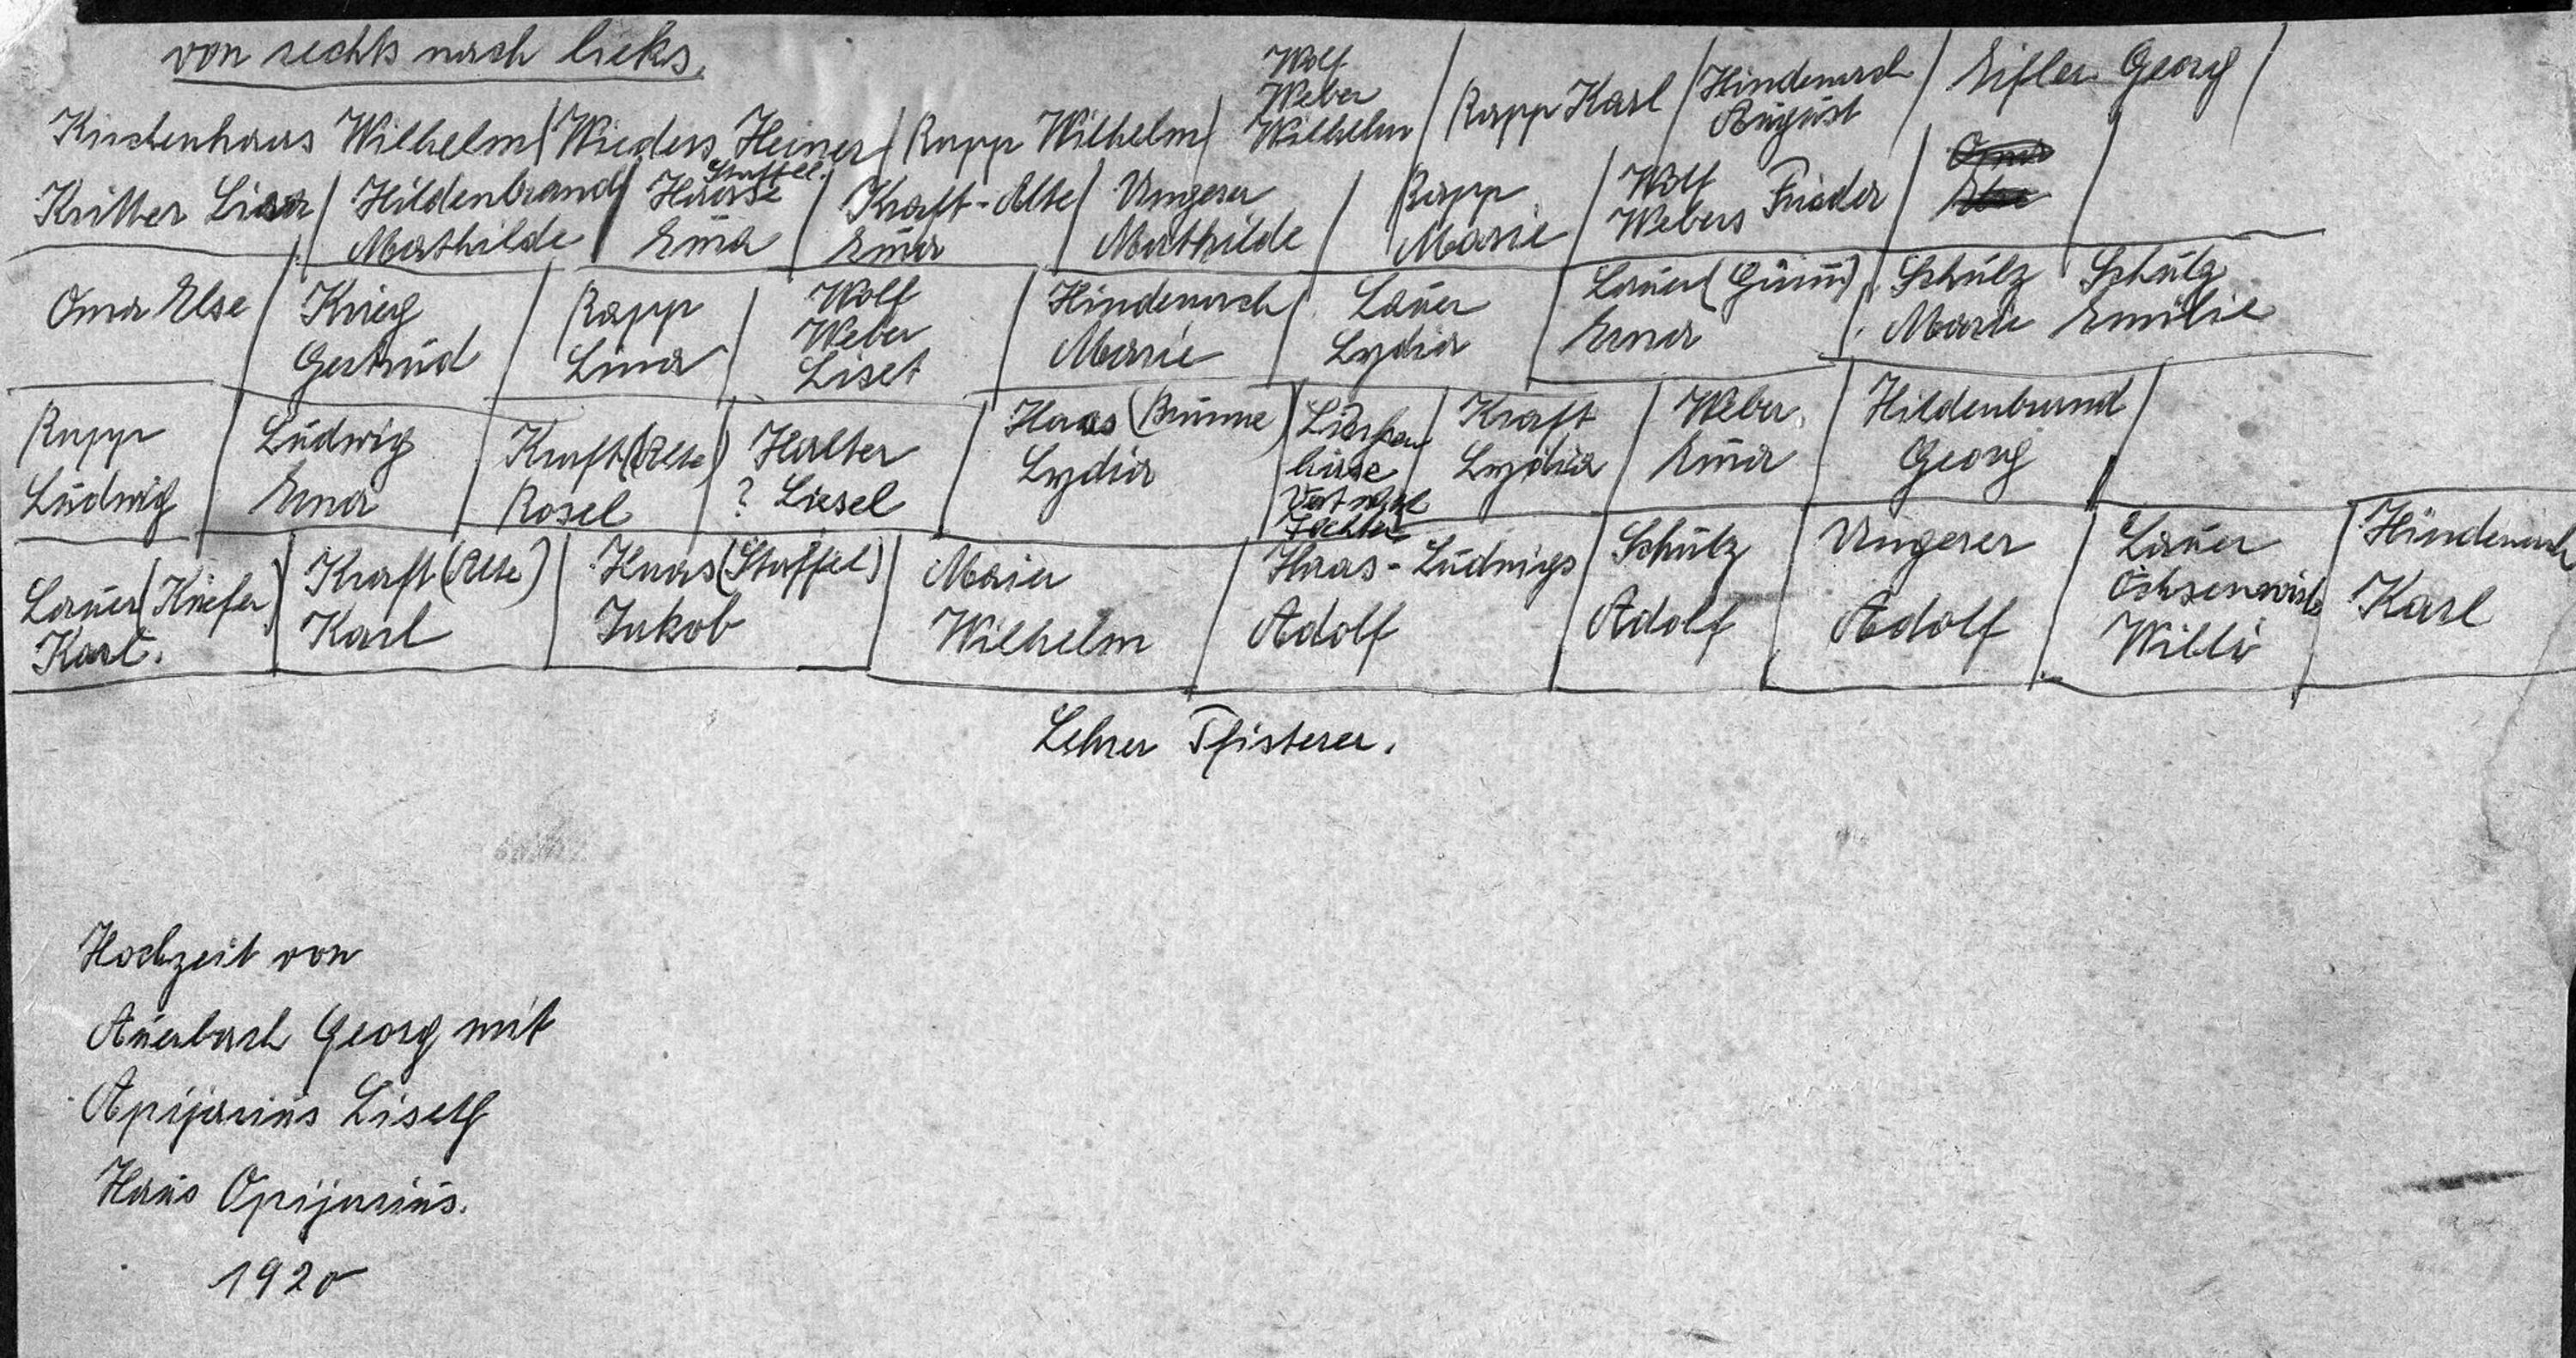 von rechts nach links.
Kirchenhaus Wilhelm | Wieders Heiner | Rupp Wilhelm | Wolf Weber Wilhelm | Rapp Karl | Hindenach August | Eifler Georg
Kritter Lisa | Hildenbrand Mathilde | Haase Staffel. Em̄a | Kraft-Alte Em̄a | Ungerer Mathilde | Rapp Marie | Wolf Webers Frieder
Oma Else | Krieg Gertrud | Rapp Lina | Wolf Weber Liset | Hindenach Marie | Lauer Lydia | Lauer (Grün) Erna | Schulz Marie Schulz Emilie
Rupp Ludwig | Ludwig Erna | Kraft (Alte) Rosel | Halter ? Liesel | Haas (Brunne) Lydia | Tochter | Kraft Lydia | Weber Em̄a | Hildenbrand Georg
Lauer (Kiefer) Karl. | Kraft (Alte) Karl | Haas (Staffel) Jakob | Maier Wilhelm | Haas-Ludwigs Adolf | Schulz Adolf | Ungerer Adolf | Lauer Ochsenwirts Willi | Hindenach Karl
Lehrer Pfisterer.
Hochzeit von
Auerbach Georg mit
Apijarius Liseth
Haus Opijarius.
1920